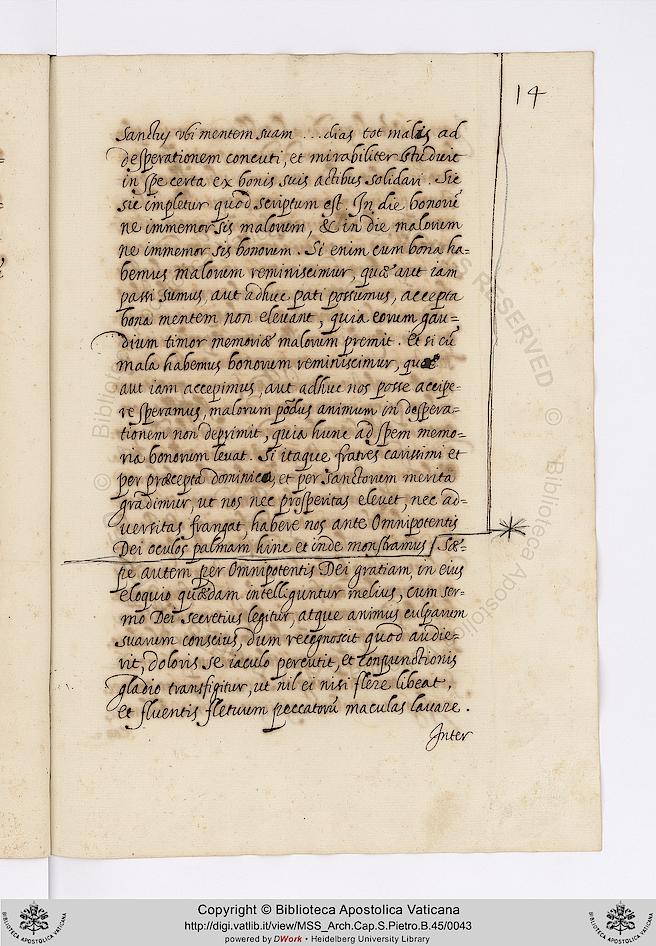 14
Sanctus vbi mentem suam ...dias tot malis ad
desperationem concuti, et mirabiliter studuit
in spe certa ex bonis suis actibus solidari. Sic
sic impletur quod scriptum est. In die bonorũ
ne immemor sis malorum, & in die malorum
ne immemor sis bonorum. Si enim cum bona ha=
bemus malorum reminiscimur, quæ aut iam
passi sumus, aut adhuc pati possumus, accepta
bona mentem non elevant, quia eorum gau=
dium timor memoriæ malorum premit. Et si cũ
mala habemus bonorum reminiscimur, quæ
aut iam accepimus, aut adhuc nos posse accipe=
re speramus, malorum põdus animum in despera=
tionem non deprimit, quia hunc ad spem memo=
ria bonorum levat. Si itaque fratres carissimi et
per præcepta dominica, et per Sanctorum merita
gradimur, ut nos nec prosperitas elevet, nec ad=
versitas frangat, habere nos ante Omnipotentis
Dei oculos palmam hinc et inde monstramus Sæ=
pe autem per Omnipotentis Dei gratiam, in eius
eloquio quædam intelliguntur melius, cum ser=
mo Dei secretius legitur, atque animus culparum
suarum conscius, dum recognoscit quod audie=
rit, doloris se iaculo percutit, et conpunctionis
gladio transfigitur, ut nil ei nisi flere libeat,
et fluentis fletuum peccatorũ maculas lavare.
Inter
Copyright © Biblioteca Apostolica Vaticana
http://digi.vatlib.it/view/MSS_Arch.Cap.S.Pietro.B.45/0043
powered by DWork • Heidelberg University Library